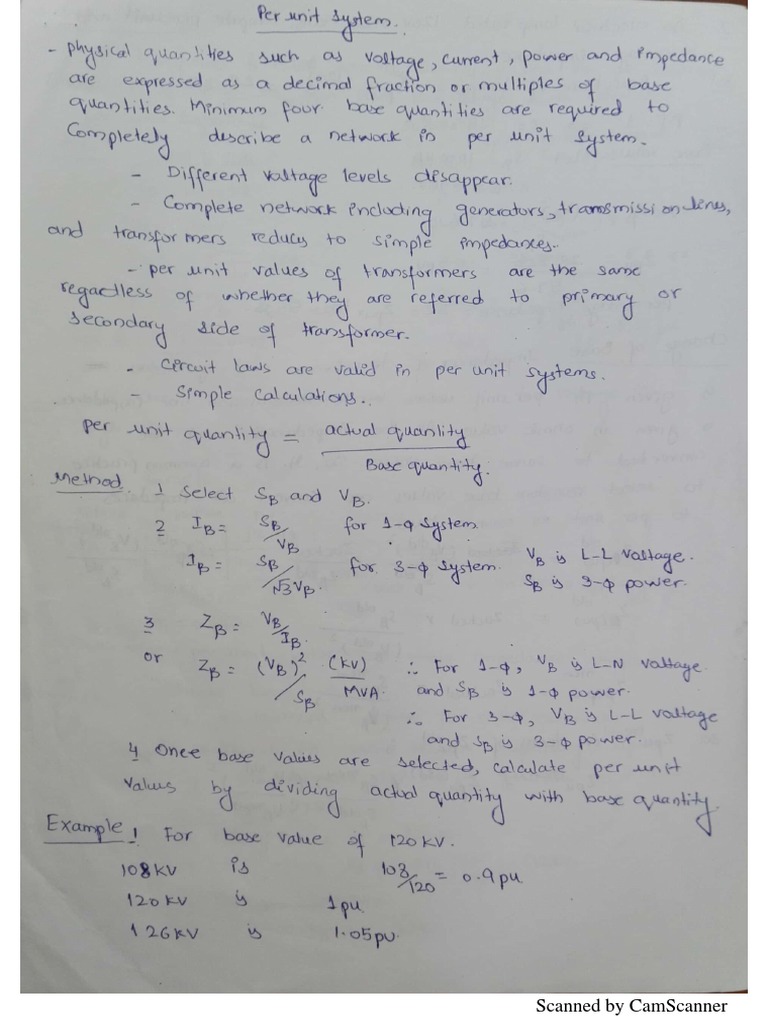 Per unit System.
- physical quantities such as voltage, current, power and impedance
are expressed as a decimal fraction or multiples of base
quantities. Minimum four base quantities are required to
Completely describe a network in per unit System.
- Different voltage levels disappear.
- Complete network including generators, transmission lines,
and transformers reduces to simple impedances.
- per unit values of transformers are the same
regardless of whether they are referred to primary or
secondary side of transformer.
- Circuit laws are valid in per unit systems.
- Simple Calculations.
per unit quantity = actual quantity / Base quantity.
Method. 1 Select S_B and V_B.
2 I_B = S_B/V_B for 1-φ System.
I_B = S_B/√3V_B. for 3-φ System. V_B is L-L voltage.
S_B is 3-φ power.
3 Z_B = V_B/I_B.
or Z_B = (V_B)²/S_B (KV)/MVA ∴ For 1-φ, V_B is L-N voltage
and S_B is 1-φ power.
∴ For 3-φ, V_B is L-L voltage
and S_B is 3-φ power.
4 Once base values are selected, calculate per unit
values by dividing actual quantity with base quantity.
Example 1 For base value of 120 KV.
108 KV is 108/120 = 0.9 pu
120 KV is 1 pu
126 KV is 1.05 pu.
Scanned by CamScanner